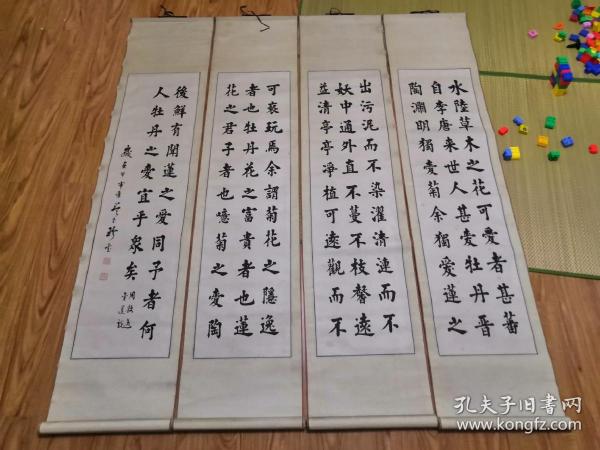 水陸草木之花可愛者甚蕃
自李唐来世人甚愛牡丹晋
陶淵明獨愛菊余獨愛蓮之
出污泥而不染濯清漣而不
妖中通外直不蔓不枝馨遠
益清亭亭净植可遠觀而不
可亵玩焉余謂菊花之隱逸
者也牡丹花之富貴者也蓮
花之君子者也噫菊之愛陶
後鮮有聞蓮之愛同予者何
人牡丹之愛宜乎衆矣
周敦頤
愛蓮說
孔夫子旧書网
www.kongfz.com